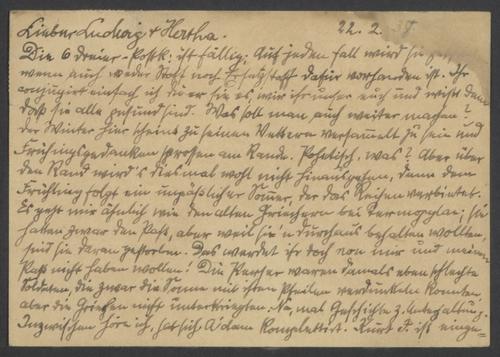 Lieber Ludwig + Hertha. 22. 2.
Die 6 Dreier-Postk. ist fällig. Auf jeden Fall wird sie
wenn auch weder Stoff noch Ersatzstoff dafür vorhanden ist. Ihr
conjugirt einfach ich du er sie es, wir ihr unser euch und wißt dann
daß sie alle gesund sind. Was soll man auch weiter machen?
der Winter hier scheint zu seinen Vettern versammelt zu sein und
Frühlingsgedanken sprossen am Rande. Pohetisch, was? Aber über
den Rand wird's diesmal wohl nicht hinausgehen, denn dem
Frühling folgt ein unpäßlicher Sommer, der das Reisen verbietet.
Es geht mir ähnlich wie den alten Griechern bei Termopylae; sie
haben zwar den Paß, aber weil sie 'n durchaus behalten wollten,
sind sie daran gestorben. Das werdet ihr doch von mir und meinem
Paß nicht haben wollen! Die Perser waren damals eben schlechte
Soldaten, die zwar die Sonne mit ihren Pfeilen verdunkeln konnten,
aber die Griechen nicht unterkriegten. Na, mal Geschichte z. Unterhaltung.
Inzwischen höre ich, hat sich Adam komplettirt. Kurt J. ist einge-